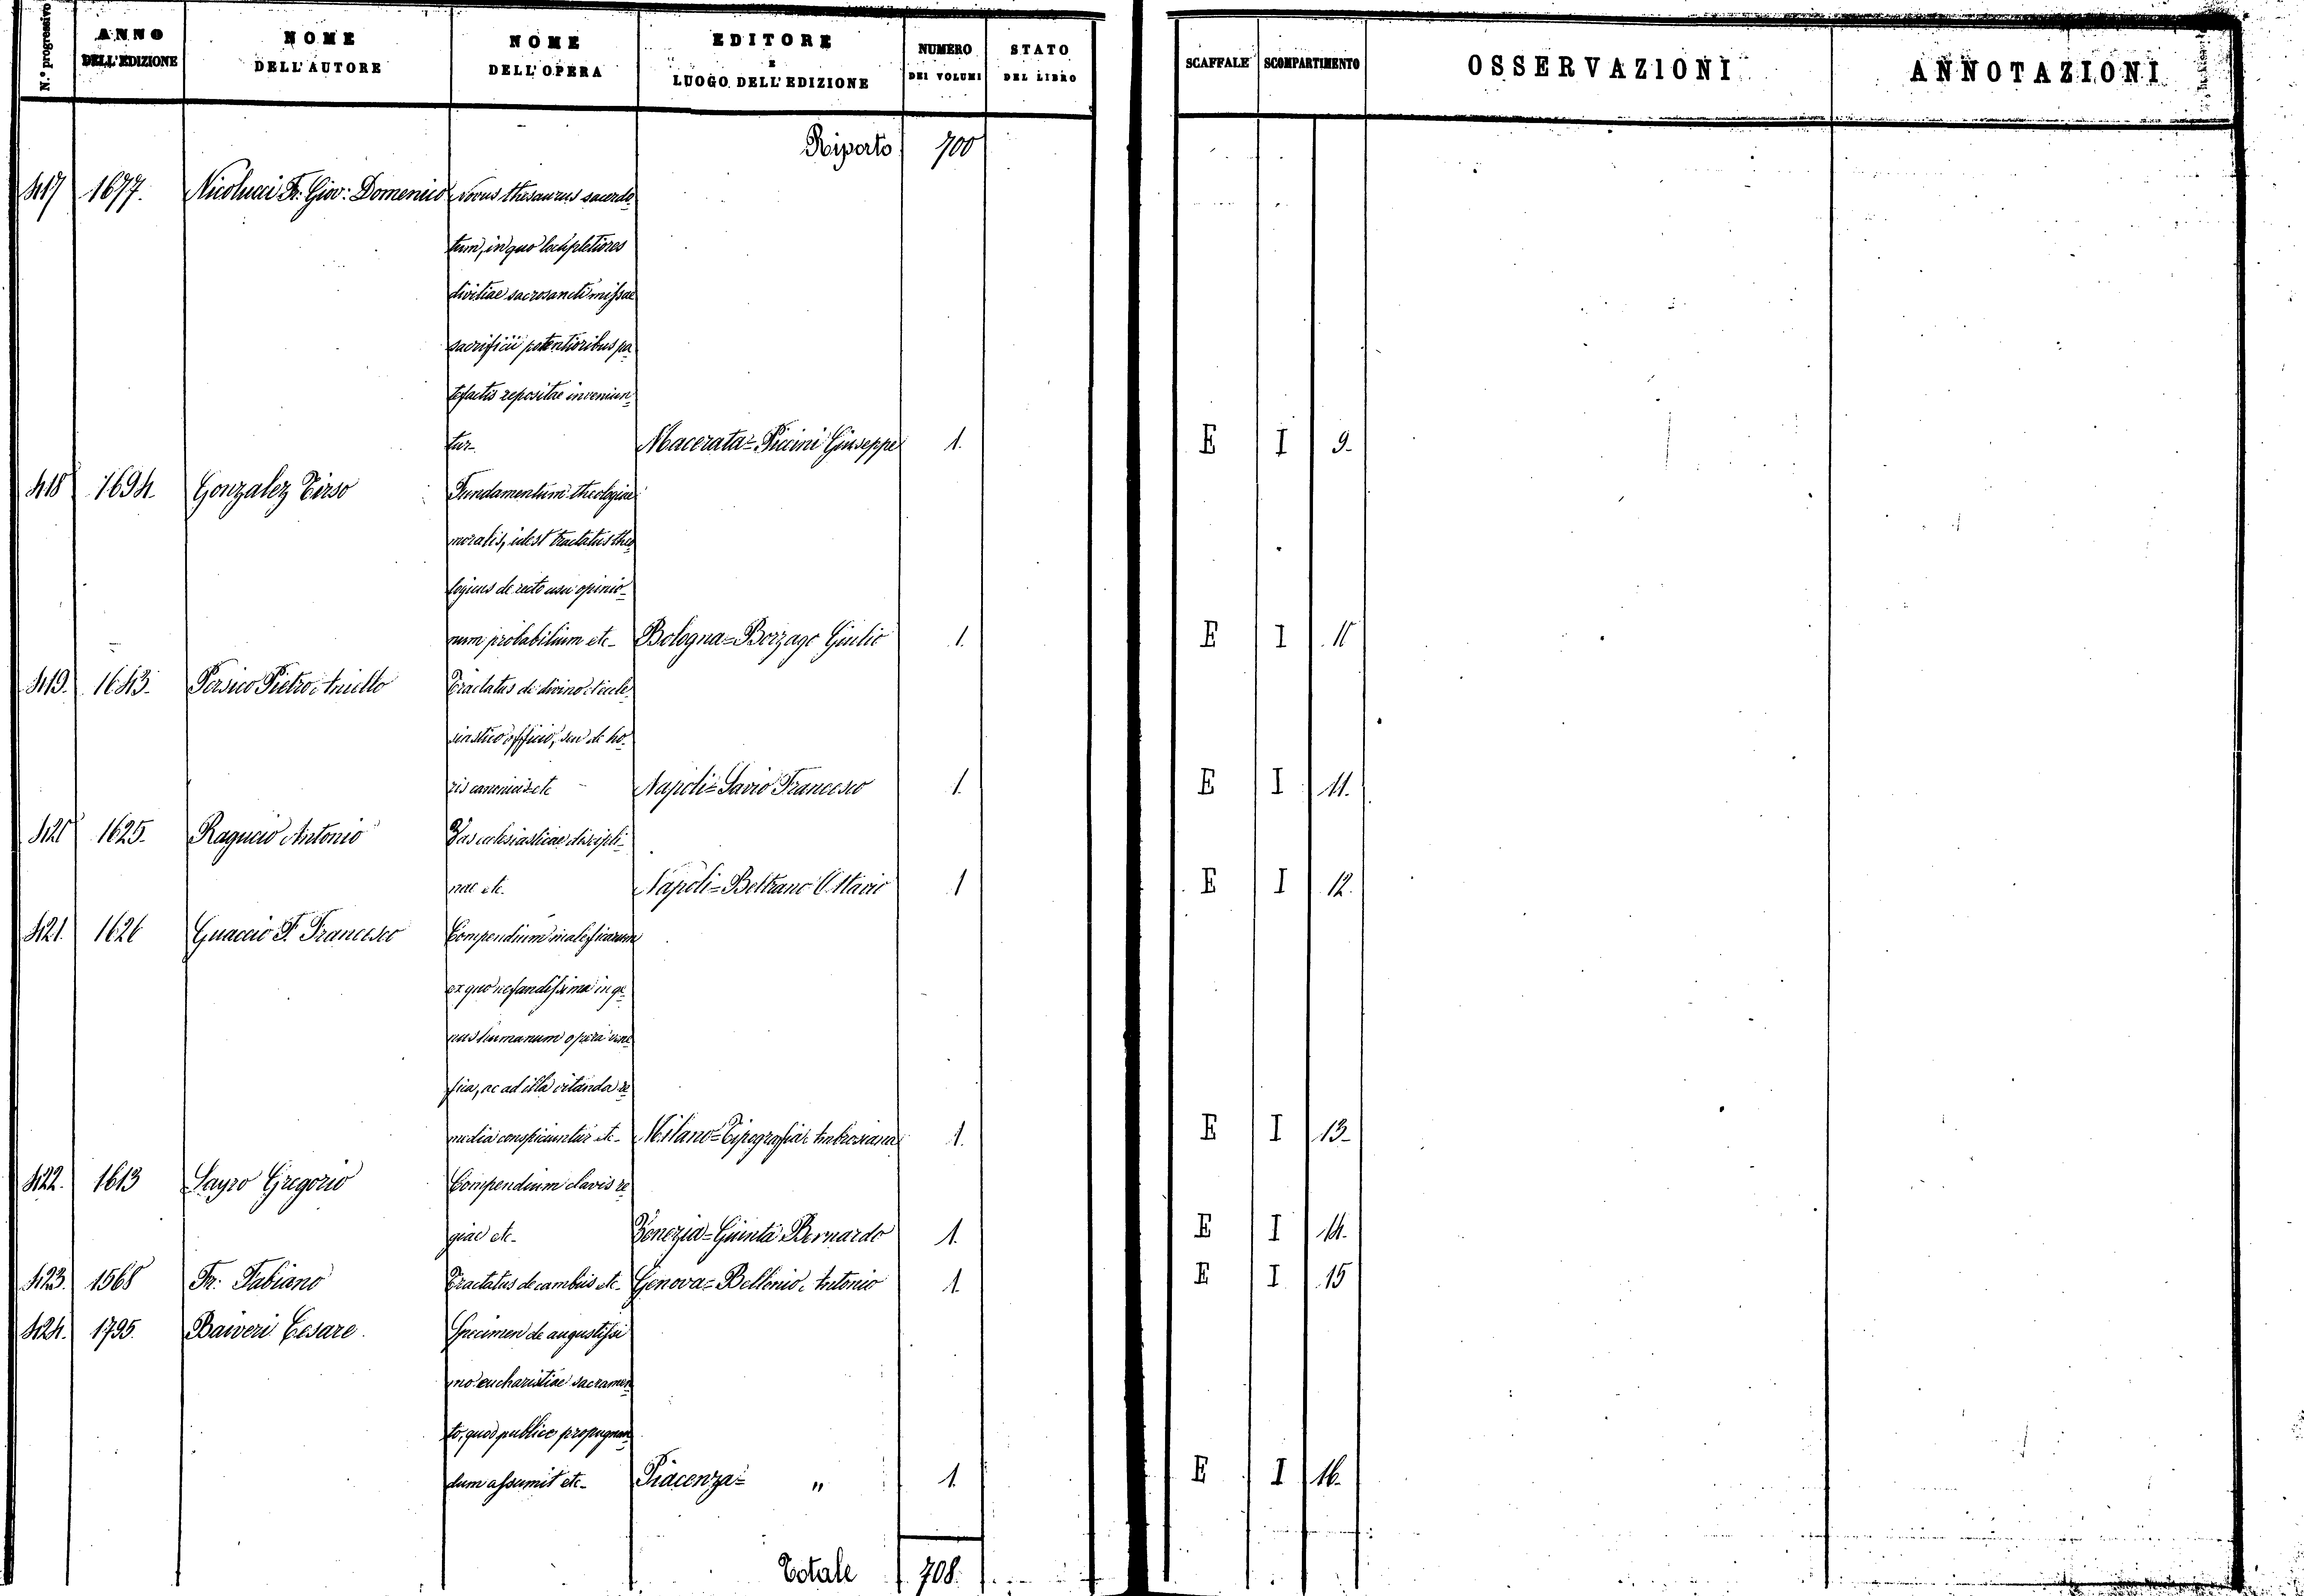 N.° progressivo
ANNO DELL'EDIZIONE
NOME DELL'AUTORE
NOME DELL'OPERA
EDITORE E LUOGO DELL'EDIZIONE
NUMERO DEI VOLUMI
STATO DEL LIBRO
SCAFFALE
SCOMPARTIMENTO
OSSERVAZIONI
ANNOTAZIONI
Riporto 700
417 1677. Nicolucci Fr. Giov: Domenico Novus thesaurus sacerdo-
tum, in quo locupletiores
divitiae sacrosancti missae
sacrificii potentioribus pa-
tefactis repositae inveniun-
tur- Macerata = Piccini Giuseppe 1. E I 9-
418 1694. Gonzalez Tirso Fundamentum theologiae
moralis, idest tractatus theo-
logicus de recto usu opinio-
num probabilium etc- Bologna = Borzago Giulio 1. E I 10
419. 1643- Persico Pietro Aniello Tractatus de divino Eccle-
siastico officio, seu de ho-
ris canonicis etc Napoli = Savio Francesco 1. E I 11.
420 1625- Ragucio Antonio Vas ecclesiasticae discipli-
nae etc. Napoli = Beltrano Ottavio 1 E I 12.
421. 1626 Guaccio F. Francesco Compendium maleficarum
ex quo nefandissima in ge-
nus humanum opera vene-
fica, ac ad illa vitanda re-
media conspiciuntur etc- Milano = Tipografia Ambrosiana 1. E I 13-
422. 1613 Sayro Gregorio Compendium clavis re-
giae etc- Venezia = Giunta Bernardo 1. E I 14.
423. 1568 Fr. Fabiano Tractatus de cambiis etc- Genova = Bellonio Antonio 1. E I 15
424. 1795. Cesare Specimen de augustissi-
mo eucharistiae sacramen-
to, quod publice propugnan-
dum assumit etc- Piacenza = " 1. E I 16-
Totale 708.